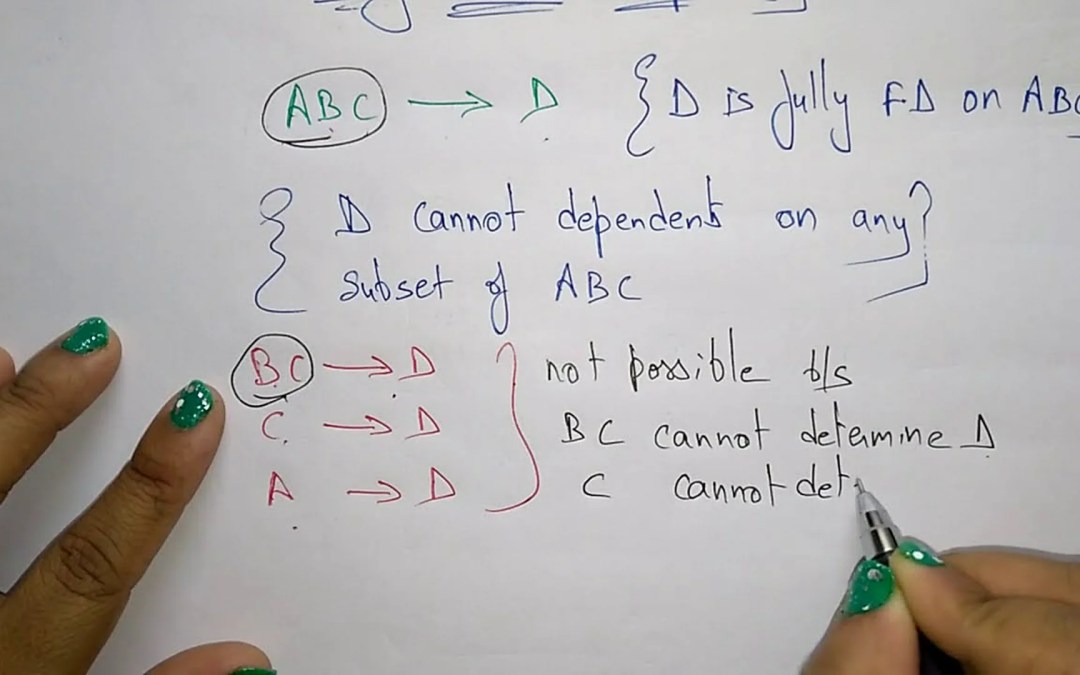 ABC → D { D is fully FD on ABC
{ D cannot dependent on any }
subset of ABC
BC → D } not possible b/s
C → D BC cannot determine D
A → D C cannot det